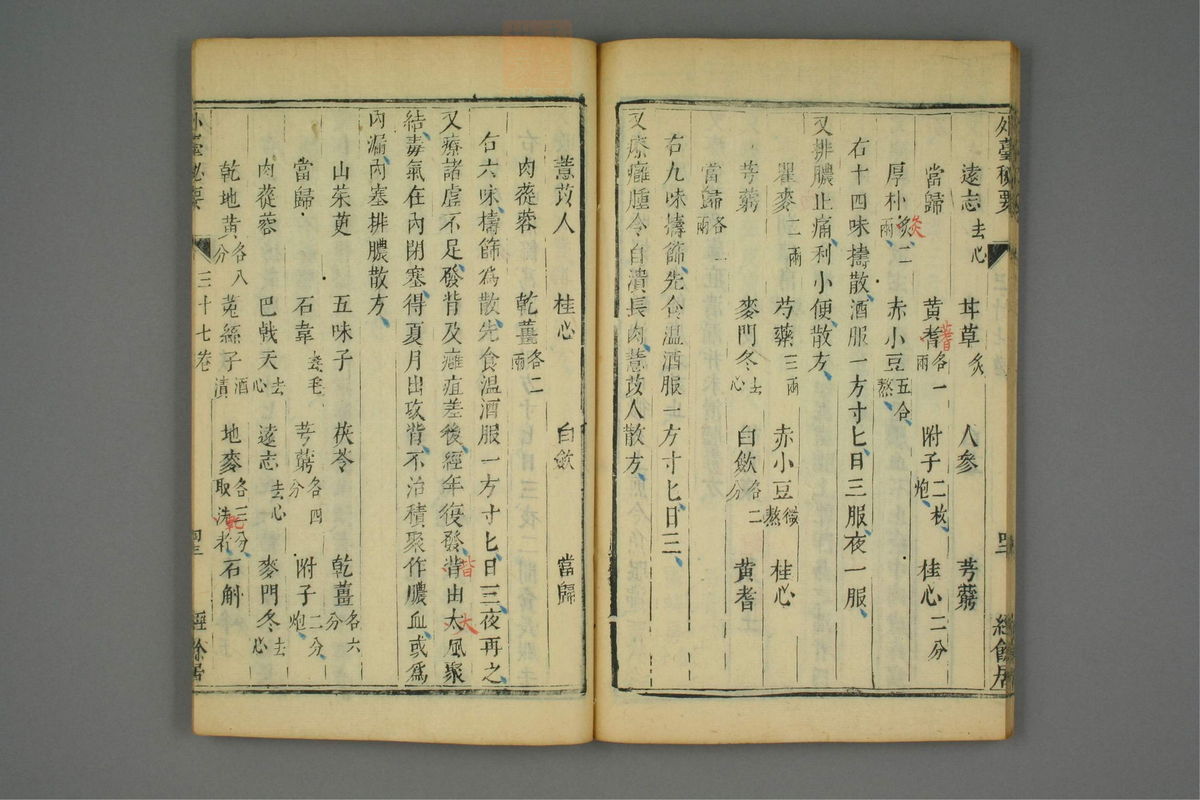 外臺秘要
四三
經餘居
遠志去心 甘草炙 人參 芎藭
當歸 黃耆各一兩 附子二枚炮 桂心二分
厚朴炙二兩 赤小豆五合熬
炙
蓍
右十四味擣散酒服一方寸匕日三服夜一服
又排膿止痛利小便散方
瞿麥二兩 芍藥三兩 赤小豆微熬 桂心
芎藭 麥門冬去心 白歛各二分 黃耆
當歸各一兩
右九味擣篩先食溫酒服一方寸匕日三
又療癰腫令自潰長肉薏苡人散方
薏苡人 桂心 白歛 當歸
肉蓯蓉 乾薑各二兩
右六味擣篩為散先食溫酒服一方寸匕日三夜再之
又療諸虛不足發背及癰疽差後經年復發背由太風聚
背
大
結毒氣在內閉塞得夏月出攻背不治積聚作膿血或為
內漏內塞排膿散方
山茱萸 五味子 茯苓 乾薑各六分
當歸 石韋去毛 芎藭各四分 附子二分炮
肉蓯蓉 巴戟天去心 遠志去心 麥門冬去心
乾地黃各八分 菟絲子酒漬 地麥各三分取洗者 石斛
乾
外臺秘要
三十七卷
四三
經餘居